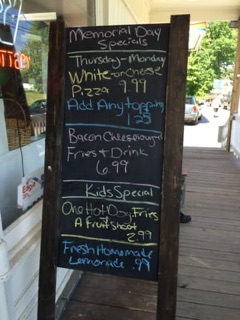 Memorial Day
Specials
Thursday - Monday
White or Cheese
Pizza 9.99
Add Any topping
1.25
Fries + Drink
6.99
Kids Special
One Hot Dog, Fries
A Fruit Shoot
2.99
Fresh Homemade
Lemonade .99